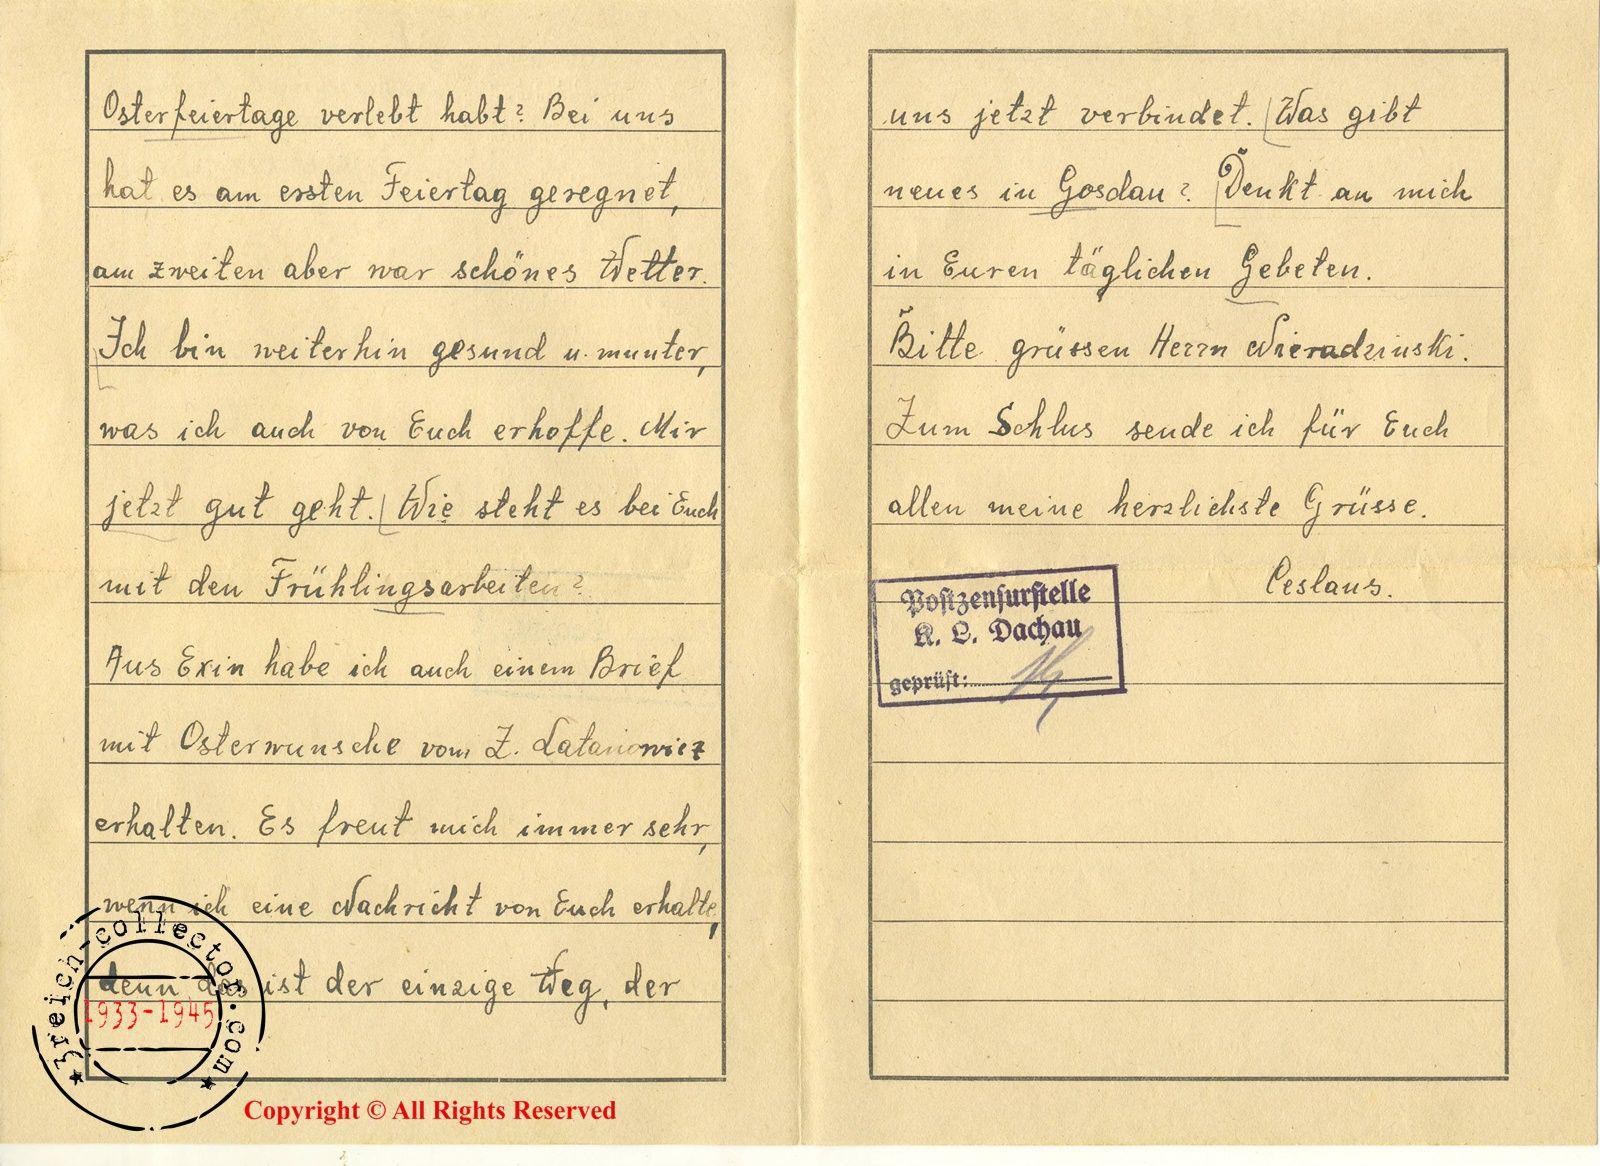 Osterfeiertage verlebt habt? Bei uns
hat es am ersten Feiertag geregnet,
am zweiten aber war schönes Wetter.
Ich bin weiterhin gesund u. munter,
was ich auch von Euch erhoffe. Mir
jetzt gut geht. Wie steht es bei Euch
mit den Frühlingsarbeiten?
Aus Exin habe ich auch einem Brief
mit Osterwunsche vom Z. Latanowicz
erhalten. Es freut mich immer sehr,
wenn ich eine Nachricht von Euch erhalte,
denn das ist der einzige Weg, der
uns jetzt verbindet. Was gibt
neues in Gosdau? Denkt an mich
in Euren täglichen Gebeten.
Bitte grüssen Herrn Nieradzinski.
Zum Schlus sende ich für Euch
allen meine herzlichste Grüsse.
Ceslaus.
Postzensurstelle
K. L. Dachau
geprüft:
3reich-collector.com
1933-1945
Copyright © All Rights Reserved